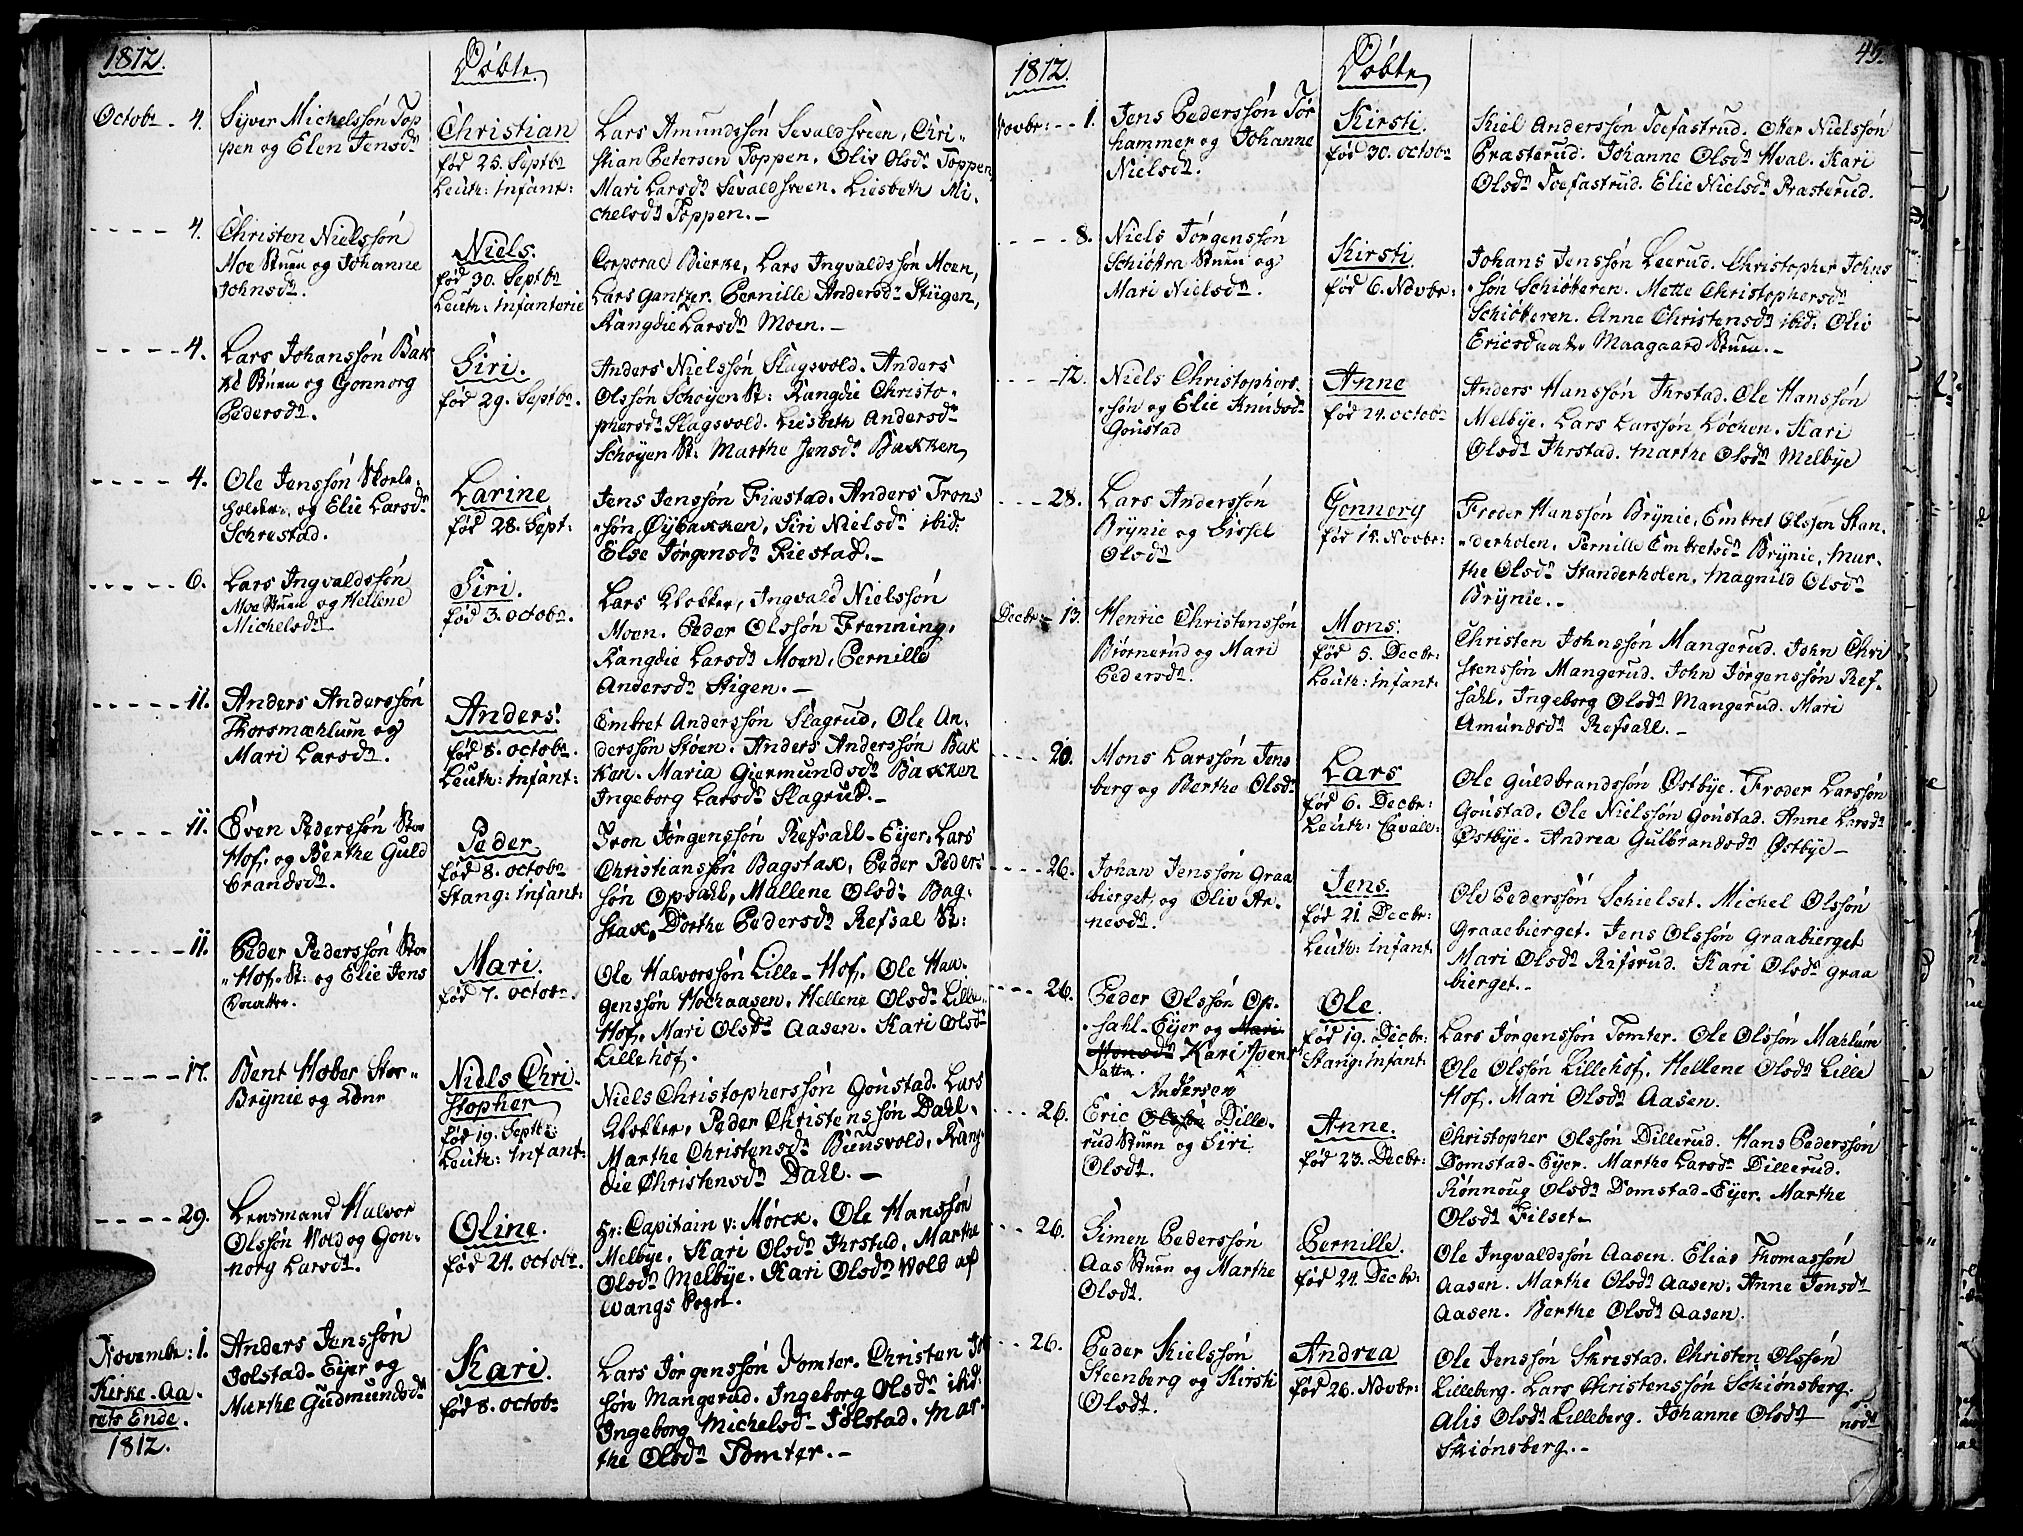 1812.
Døbte
Octobr - 4.
Syver Michelssøn Top
pen og Elen Jensdr
Christian
fød 25. Septbr
Leuth: Infant:
Lars Amundssøn Sevaldsveen, Chri-
stian Petersen Toppen. Oliv Olsdr Toppen,
Mari Larsdr Sevaldsveen. Liesbeth Mi-
chelsdr Toppen. -
4.
Christen Nielssøn
Moe Stuen og Johanne
Johnsdr.
Niels.
fød 30. Septbr
Leuth: Infanterie
Corporal Bierke, Lars Ingvaldssøn Moen,
Lars Gantzer. Pernille Andersdr Stigen,
Rangdie Larsdr Moen. -
4.
Lars Johanssøn Bak
ke Stuen og Gonnorg
Pedersdr.
Siri.
fød 29. Septbr.
Anders Nielssøn Slagsvold. Anders
Olssøn Schøyen St: Rangdie Christo-
phersdr Slagsvold. Liesbeth Andersdr
Schøyen St: Marthe Jensdr Bakken
4.
Ole Jenssøn Skole-
holder, og Elie Larsdr
Schrestad.
Larine
fød 28. Sept:
Jens Jenssøn Fiæstad. Anders Trons
søn Øybakken, Siri Nielsdr ibid:
Else Jørgensdr Fiestad. -
6.
Lars Ingvaldssøn
Moe Stuen og Hellene
Michelsdr
Siri.
fød 3. octobr.
Lars Klokker, Ingvald Nielssøn
Moen. Peder Olssøn Frenning.
Rangdie Larsdr Moen, Pernille
Andersdr Stigen. -
11.
Anders Anderssøn
Thorsmæhlum og
Mari Larsdr.
Anders.
fød 8. octobr.
Leuth: Infant:
Embret Anderssøn Slagrud, Ole An-
derssøn Stoen. Anders Anderssøn Bak
ken. Maria Giermundsdr Bakken
Ingeborg Larsdr Slagrud. -
11.
Even Pederssøn Stor
Hof. og Berthe Guld
brandsdr.
Peder
fød 8. octobr
Stang: Infant:
Tron Jørgenssøn Refsahl-Eyer, Lars
Christianssøn Bagstak, Peder Peders
søn Opsahl, Mallene Olsdr Bag-
stak, Dorthe Pedersdr Refsal St:
11.
Peder Pederssøn Stor
Hof. St: og Elie Jens
Daatter.
Mari.
fød 7. octobr.
Ole Halvorssøn Lille-Hof. Ole Hau-
genssøn Hochaasen. Hellene Olsdr Lille-
Hof. Mari Olsdr Aasen. Kari Olsdr
Lillehof.
17.
Bent Hober Stor-
Brynie og
Niels Chri-
stopher
fød 19. Septbr:
Leuth: Infant:
Niels Christopherssøn Gonstad. Lars
Klokker, Peder Christenssøn Dahl.
Marthe Christensdr Biunsvold. Rang-
die Christensdr Dahl. -
29.
Lensmand Halvor
Olssøn Vold og Gon-
norg Larsdr.
Oline.
fød 24. octobr.
Hr. Capitain v: Mørck. Ole Hanssøn
Melbye. Kari Olsdr Thrstad. Marthe
Olsdr Melbye. Kari Olsdr Vold af
Wangs Pegn.
Novembr: 1.
Kirke-Aa-
rets Ende.
1812.
Anders Jenssøn
Jolstad-Eyer og
Marthe Gudmundsdr
Kari.
fød 8. octobr
Lars Jørgenssøn Tomter. Christen Jo
søn Mangerud. Ingeborg Olsdr ibid:
Ingeborg Michelsdr Jølstad. Mar-
the Olsdr Tomter. -
1812.
Døbte
45.
Novbr: - 1.
Jens Pederssøn Tor
hammer og Johanne
Nielsdr.
Kirsti.
fød 30. octobr
Kiel Anderssøn Toefastrud. Otter Nielssøn
Præsterud. Johanne Olsdr Hval. Kari
Olsdr Toefastrud. Elie Nielsdr Præsterud.
8.
Niels Jørgenssøn
Schiøtra Stuen og
Mari Nielsdr.
Kirsti.
fød 6. Novbr:
Johans Jenssøn Leerud. Christopher Johns
søn Schiøtteren. Mette Christophersdr
Schiøtteren. Anne Christensdr ibid: Oliv
Ericsdaatter Maagaard Stuen. -
12.
Niels Christophers-
søn og Elie Knudsdr
Gonstad
Anne
fød 24. octobr
Anders Hanssøn Thrstad. Ole Hanssøn
Melbye. Lars Larssøn Løchen. Kari
Olsdr Thrstad. Marthe Olsdr Melbye
28.
Lars Anderssøn
Brynie og Sissel
Olsdr
Gonnorg
fød 18. Novbr:
Froder Hanssøn Brynie, Embret Olssøn Stan-
derholen. Pernille Embretsdr Brynie, Mar-
the Olsdr Standerholen, Magnild Olsdr
Brynie. -
Decbr - 13.
Henric Christenssøn
Biørnerud og Mari
Pedersdr.
Mons.
fød 5. Decbr:
Leuth: Infant.
Christen Johnssøn Mangerud. John Chri
stenssøn Mangerud. John Jørgenssøn Ref-
sahl. Ingeborg Olsdr Mangerud. Mari
Amundsdr Refsahl. -
20.
Mons Larssøn Jens
berg og Berthe Olsdr
Lars
fød 6. Decbr:
Leuth: Cavale:
Ole Guldbrandssøn Østbye. Froder Larssøn
Gonstad. Ole Nielssøn Gonstad. Anne Larsdr
Østbye. Andrea Gulbrandsdr Østbye -
26.
Johan Jenssøn Graa
bierget, og Oliv Ar-
nesdr.
Jens
fød 21. Decbr:
Leuth: Infant.
Ole Pederssøn Schielset. Michel Olssøn
Graaebierget. Jens Olssøn Graabierget
Mari Olsdr Rifsrud. Kari Olsdr Graa
bierget. -
26.
Peder Olssøn Op-
sahl-Eyer og Mari
Hansdr Kari Ivers
datter.
Ole.
fød 19. Decbr:
Stang: Infant:
Lars Jørgenssøn Tomter. Ole Olssøn Mæhlum
Ole Olssøn Lillehof. Hellene Olsdr Lille
Hof. Mari Olsdr Aasen.
26.
Andersen
Eric Olssøn Dille-
rud Stuen og Siri
Olsdr.
Anne.
fød 23. Decbr:
Christopher Olssøn Dillerud. Hans Pederssøn
Domstad-Eyer. Marthe Larsdr Dillerud.
Rønnoug Olsdr Domstad-Eyer. Marthe
Olsdr Filset -
26.
Simen Pederssøn
Aas Stuen og Marthe
Olsdr.
Pernille.
fød 24. Decbr:
Ole Ingvaldssøn Aasen. Elias Thomassøn
Aasen. Marthe Olsdr Aasen. Anne Jensdr
Aasen. Berthe Olsdr Aasen.
26.
Peder Kielssøn
Steenberg og Kirsti
Olsdr.
Andrea
fød 26. Novbr:
Ole Jenssøn Skrestad. Christen Olssøn
Lilleberg. Lars Christenssøn Schiønsberg.
Alis Olsdr Lilleberg. Johanne Olsdr
Skiønsberg. -